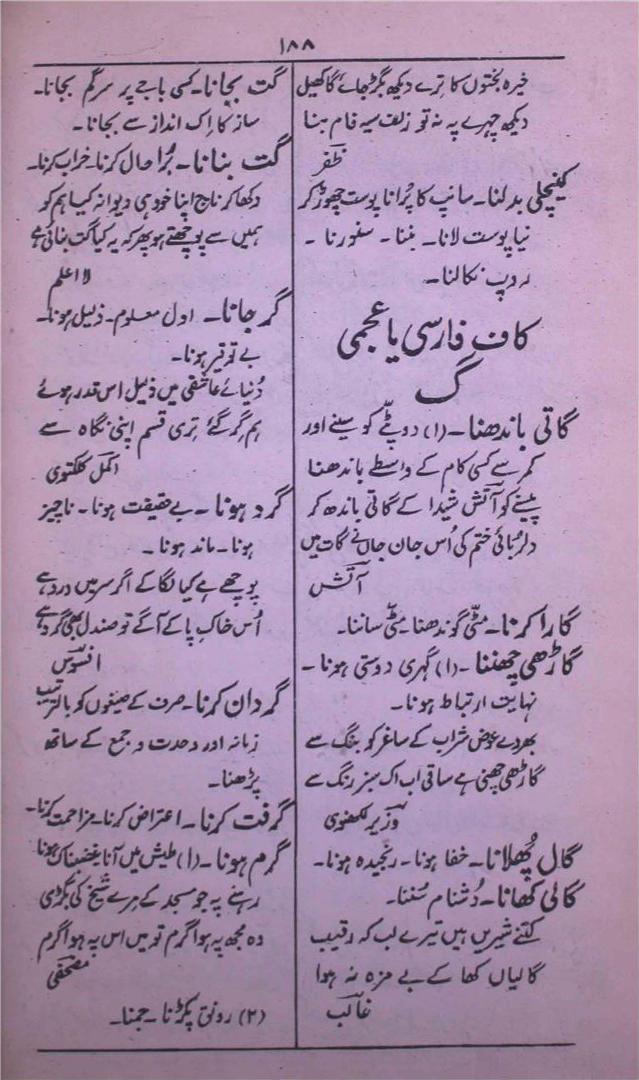 ۱۸۸
خیرہ بختوں کا ترے دیکھ بگڑ جائے گا کھیل
دیکھ چہرے پہ نہ تو زلف سیہ فام بنا
ظفر
کینچلی بدلنا۔ سانپ کا پُرانا پوست چھوڑ کر
نیا پوست لانا۔ بننا۔ سنورنا۔
روپ نکالنا۔
کاف فارسی یا عجمی
گ
گاتی باندھنا۔ (۱) دوپٹے کو سینے اور
کمر سے کسی کام کے واسطے باندھنا
پیسنے کو آتش شیدا کے گاتی باندھ کر
دلربائی ختم کی اُس جان جاں نے گات میں
آتش
گارا کرنا۔ مٹی گوندھنا مٹی ساننا۔
گاڑھی چھننا۔ (۱) گہری دوستی ہونا۔
نہایت ارتباط ہونا۔
بھر دے عوض شراب کے ساغر کو بنگ سے
گاڑھی چھنی ہے ساقی اب اک سبز رنگ سے
وزیر لکھنوی
گال پُھلانا۔ خفا ہونا۔ رنجیدہ ہونا۔
گالی کھانا۔ دُشنام سُننا۔
کتنے شیریں ہیں تیرے لب کہ رقیب
گالیاں کھا کے بے مزہ نہ ہوا
غالب
گت بجانا۔ کسی باجے پر سرگم بجانا۔
ساز کا اک انداز سے بجانا۔
گت بنانا۔ بُرا حال کرنا۔ خراب کرنا۔
دکھا کر ناچ اپنا خود ہی دیوانہ کیا ہم کو
ہمیں سے پوچھتے ہو پھر کہ یہ کیا گت بنائی ہے
لا اعلم
گر جانا۔ اول معلوم۔ ذلیل ہونا۔
بے توقیر ہونا۔
دُنیائے عاشقی میں ذلیل اس قدر ہوئے
ہم گر گئے تری قسم اپنی نگاہ سے
اکمل کلکتوی
گرد ہونا۔ بے حقیقت ہونا۔ ناچیز
ہونا۔ ماند ہونا۔
پوچھے ہے کیا لگا کے اگر سر میں درد ہے
اُس خاکِ پا کے آگے تو صندل بھی گرد ہے
افسوس
گردان کرنا۔ صرف کے صیغوں کو بالترتیب
زمانہ اور وحدت و جمع کے ساتھ
پڑھنا۔
گرفت کرنا۔ اعتراض کرنا۔ مزاحمت کرنا۔
گرم ہونا۔ (۱) طیش میں آنا غضبناک ہونا
رہنے پہ جو مسجد کے مرے شیخ کی بگڑی
وہ مجھ پہ ہوا گرم تو میں اس پہ ہوا گرم
مصحفی
(۲) رونق پکڑنا۔ جمنا۔